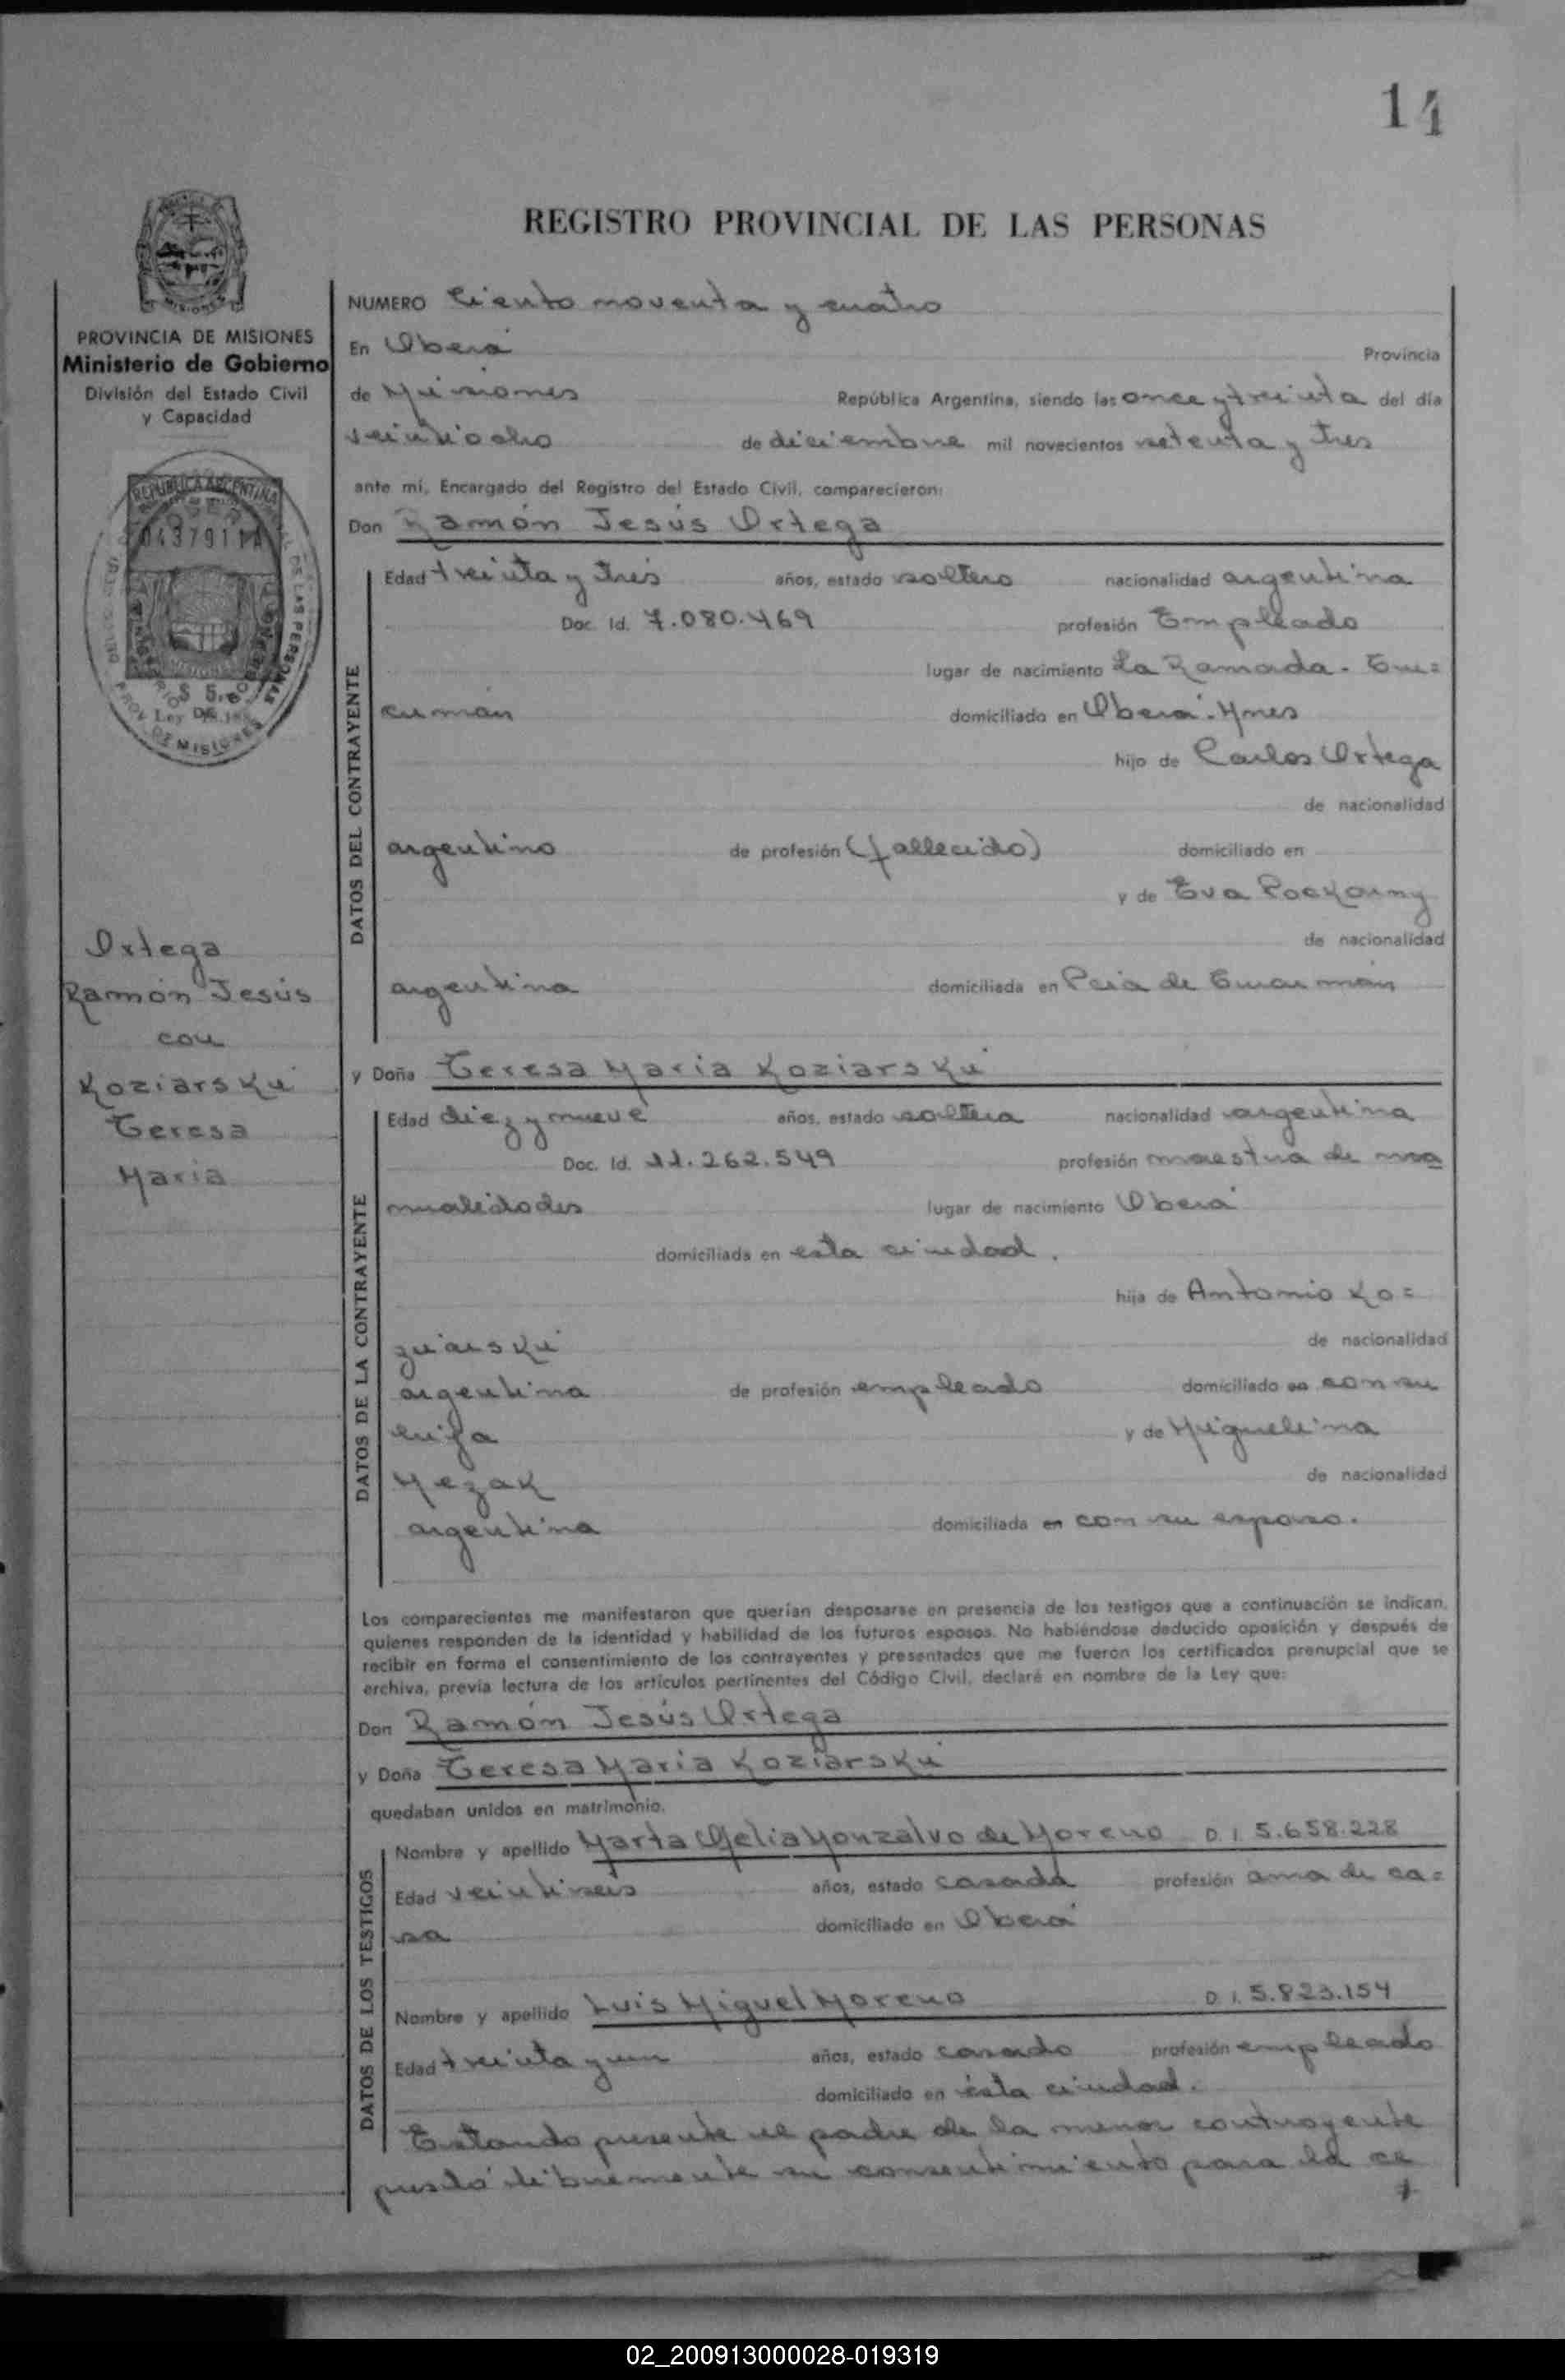 14
REGISTRO PROVINCIAL DE LAS PERSONAS
PROVINCIA DE MISIONES
Ministerio de Gobierno
División del Estado Civil
y Capacidad
REPUBLICA ARGENTINA
0437911A
MISIONES
$ 5.
Ley
PROV. DE MISIONES
Ortega
Ramón Jesús
con
Koziarski
Teresa
María
NUMERO Ciento noventa y cuatro
En Oberá Provincia
de Misiones República Argentina, siendo las once y treinta del día
veintiocho de diciembre mil novecientos setenta y tres
ante mí, Encargado del Registro del Estado Civil, comparecieron:
Don Ramón Jesús Ortega
DATOS DEL CONTRAYENTE
Edad treinta y tres años, estado soltero nacionalidad argentina
Doc. Id. 7.080.469 profesión Empleado
lugar de nacimiento La Ramada - Tu=
cumán domiciliado en Oberá - Mnes
hijo de Carlos Ortega
de nacionalidad
argentino de profesión (fallecido) domiciliado en
y de Eva
de nacionalidad
argentina domiciliada en Pcia de Tucumán
y Doña Teresa María Koziarski
DATOS DE LA CONTRAYENTE
Edad diez y nueve años, estado soltera nacionalidad argentina
Doc. Id. 11.262.549 profesión maestra de ma
nualidades lugar de nacimiento Oberá
domiciliada en esta ciudad.
hija de Antonio Ko=
ziarski de nacionalidad
argentina de profesión empleado domiciliado en con su
hija y de Miguelina
Mezak de nacionalidad
argentina domiciliada en con su esposo.
Los comparecientes me manifestaron que querían desposarse en presencia de los testigos que a continuación se indican,
quienes responden de la identidad y habilidad de los futuros esposos. No habiéndose deducido oposición y después de
recibir en forma el consentimiento de los contrayentes y presentados que me fueron los certificados prenupcial que se
archiva, previa lectura de los artículos pertinentes del Código Civil, declaré en nombre de la Ley que:
Don Ramón Jesús Ortega
y Doña Teresa María Koziarski
quedaban unidos en matrimonio.
DATOS DE LOS TESTIGOS
Nombre y apellido Marta Monzalvo de Moreno D.I. 5.658.228
Edad veintiseis años, estado casada profesión ama de ca=
sa domiciliado en Oberá
Nombre y apellido Luis Miguel Moreno D.I. 5.823.154
Edad treinta y un años, estado casado profesión empleado
domiciliado en ésta ciudad.
Estando presente el padre de la menor contrayente
prestó libremente su consentimiento para la ce
02_200913000028-019319